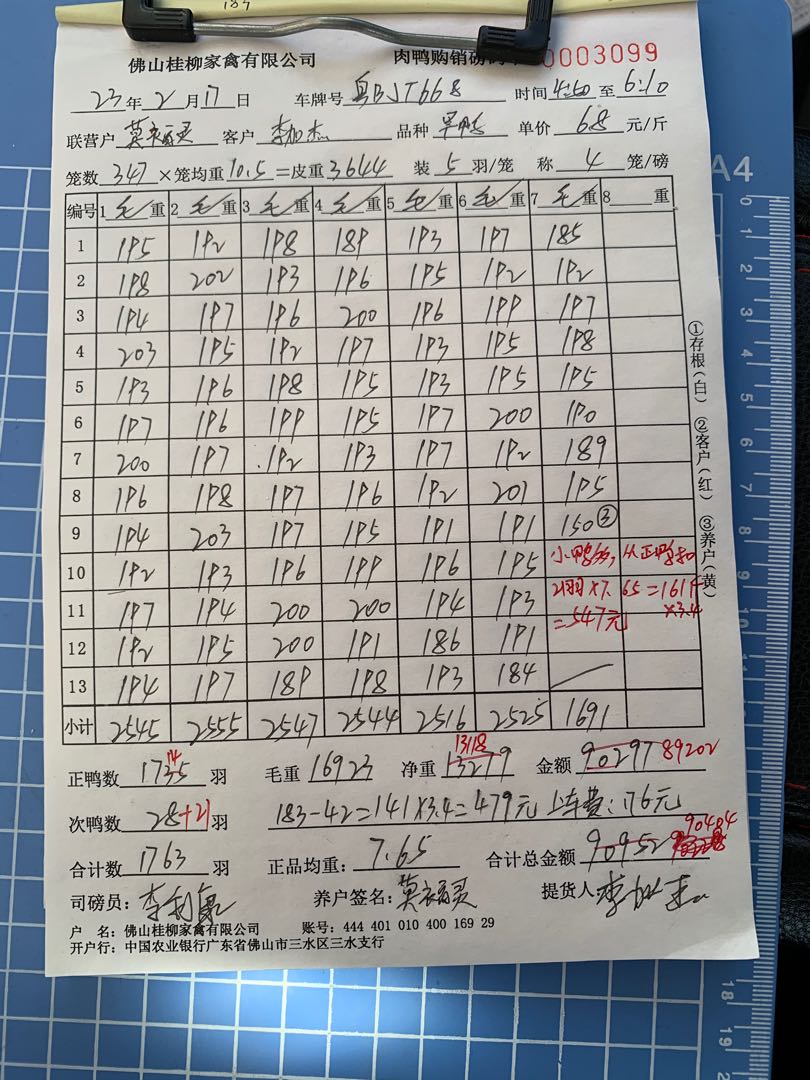 187
佛山桂柳家禽有限公司 肉鸭购销磅码单 0003099
23年2月17日 车牌号 粤BJT668 时间 4:50 至 6:10
联营户 莫衣福灵 客户 李加杰 品种 单价 6.8 元/斤
笼数 347 ×笼均重 10.5 =皮重 3644 装 5 羽/笼 称 4 笼/磅
编号 1 毛重 2 毛重 3 毛重 4 毛重 5 毛重 6 毛重 7 毛重 8 重
1 195 192 198 189 193 197 185
2 198 202 193 196 195 192 192
3 194 197 196 200 196 199 197
4 203 195 192 197 193 195 198
5 193 196 198 195 193 195 195
6 197 196 199 195 197 200 190
7 200 197 192 193 197 192 189
8 196 198 197 196 192 201 195
9 194 203 197 195 191 191 150③
10 192 193 196 199 196 195 小鸭多, 从正鸭扣
11 197 194 200 200 194 193 21羽×7.65=161斤
×3.4
=547元
12 192 195 200 191 186 191
13 194 197 189 198 193 184
小计 2545 2555 2547 2544 2516 2525 1691
正鸭数 1735 14 羽 毛重 16923 净重 13279 13118 金额 90297 89202
次鸭数 28+21 羽 183-42=141×3.4=479元 上车费:176元
合计数 1763 羽 正品均重: 7.65 合计总金额 90952 90404
司磅员: 李利康 养户签名: 莫衣福灵 提货人 李加杰
户 名: 佛山桂柳家禽有限公司 账号: 444 401 010 400 169 29
开户行: 中国农业银行广东省佛山市三水区三水支行
①存根(白) ②客户(红) ③养户(黄)
A4
0
1
2
3
4
5
6
7
8
9
10
11
18
19